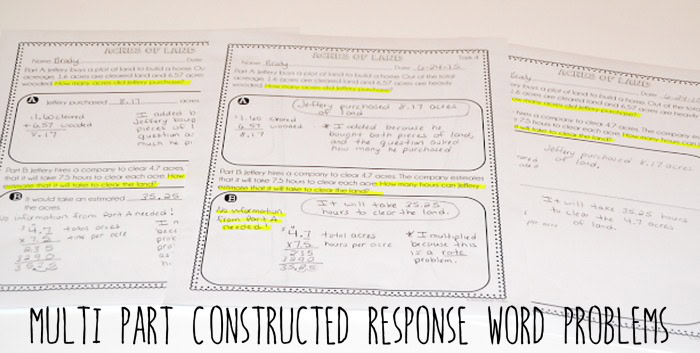 ACRES OF LAND
Name: Brady Date:
Part A: Jeffery buys a plot of land to build a home. Ou
acreage, 1.6 acres are cleared land and 6.57 acres
wooded. How many acres did Jeffery purchase?
A Jeffery purchased 8.17 acres
1.60 cleared
+6.57 wooded
8.17
I added b
Jeffery boug
pieces of l
question a
much he p
Part B: Jeffery hires a company to clear 4.7 acres.
that it will take 7.5 hours to clear each acre. How
estimate that it will take to clear the land?
B It would take an estimated 35.25
the acres.
No information from Part A needed!
4.7 total acres
x 7.5 time per acre
235
3290
35.25
ACRES OF LAND Task B
Name: Brady Date: 6-24-15
Part A: Jeffery buys a plot of land to build a home. Out of the total
acreage, 1.6 acres are cleared land and 6.57 acres are heavily
wooded. How many acres did Jeffery purchase?
A
Jeffery purchased 8.17 acres
of land.
1.60 cleared
6.57 wooded
8.17
* I added because he
bought both pieces of land,
and the question asked
how many he purchased
Part B: Jeffery hires a company to clear 4.7 acres. The company estimates
that it will take 7.5 hours to clear each acre. How many hours can Jeffery
estimate that it will take to clear the land?
B
It will take 35.25
hours to clear the land.
No information
from Part A
needed!
4.7 total acres
x7.5 hours per acre
235
3290
35.25
* I multiplied
because this
is a rate
problem.
ACRES OF LAND
Brady Date:
ery buys a plot of land to build a home. Out of
1.6 acres are cleared land and 6.57 acres are
ow many acres did Jeffery purchase?
Jeffery purchased 8.17 acres
of land.
hires a company to clear 4.7 acres. The company
7.5 hours to clear each acre. How many hours can
it will take to clear the land?
It will take 35.25 hours
to clear the 4.7 acres
of land.
MULTI PART CONSTRUCTED RESPONSE WORD PROBLEMS